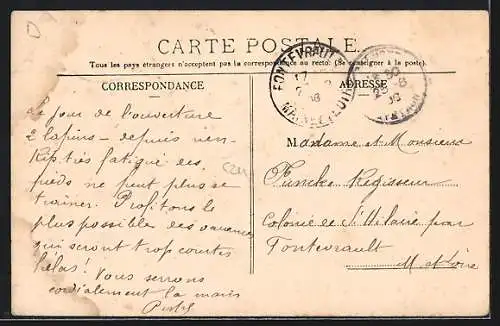 CARTE POSTALE
Tous les pays étrangers n'acceptent pas la correspondance au recto. (Se renseigner à la poste).
CORRESPONDANCE
ADRESSE
FONTEVRAULT
MAINE-ET-LOIRE
Le jour de l'ouverture
2 lapins - depuis rien.
Kip très fatigué des
pieds ne peut plus se
trainer. Profitons le
plus possible des vacances
qui seront trop courtes
hélas! Vous serrons
cordialement la main
Madame et Monsieur
Régisseur
Colonie de St Hilaire par
Fontevrault
M et Loire